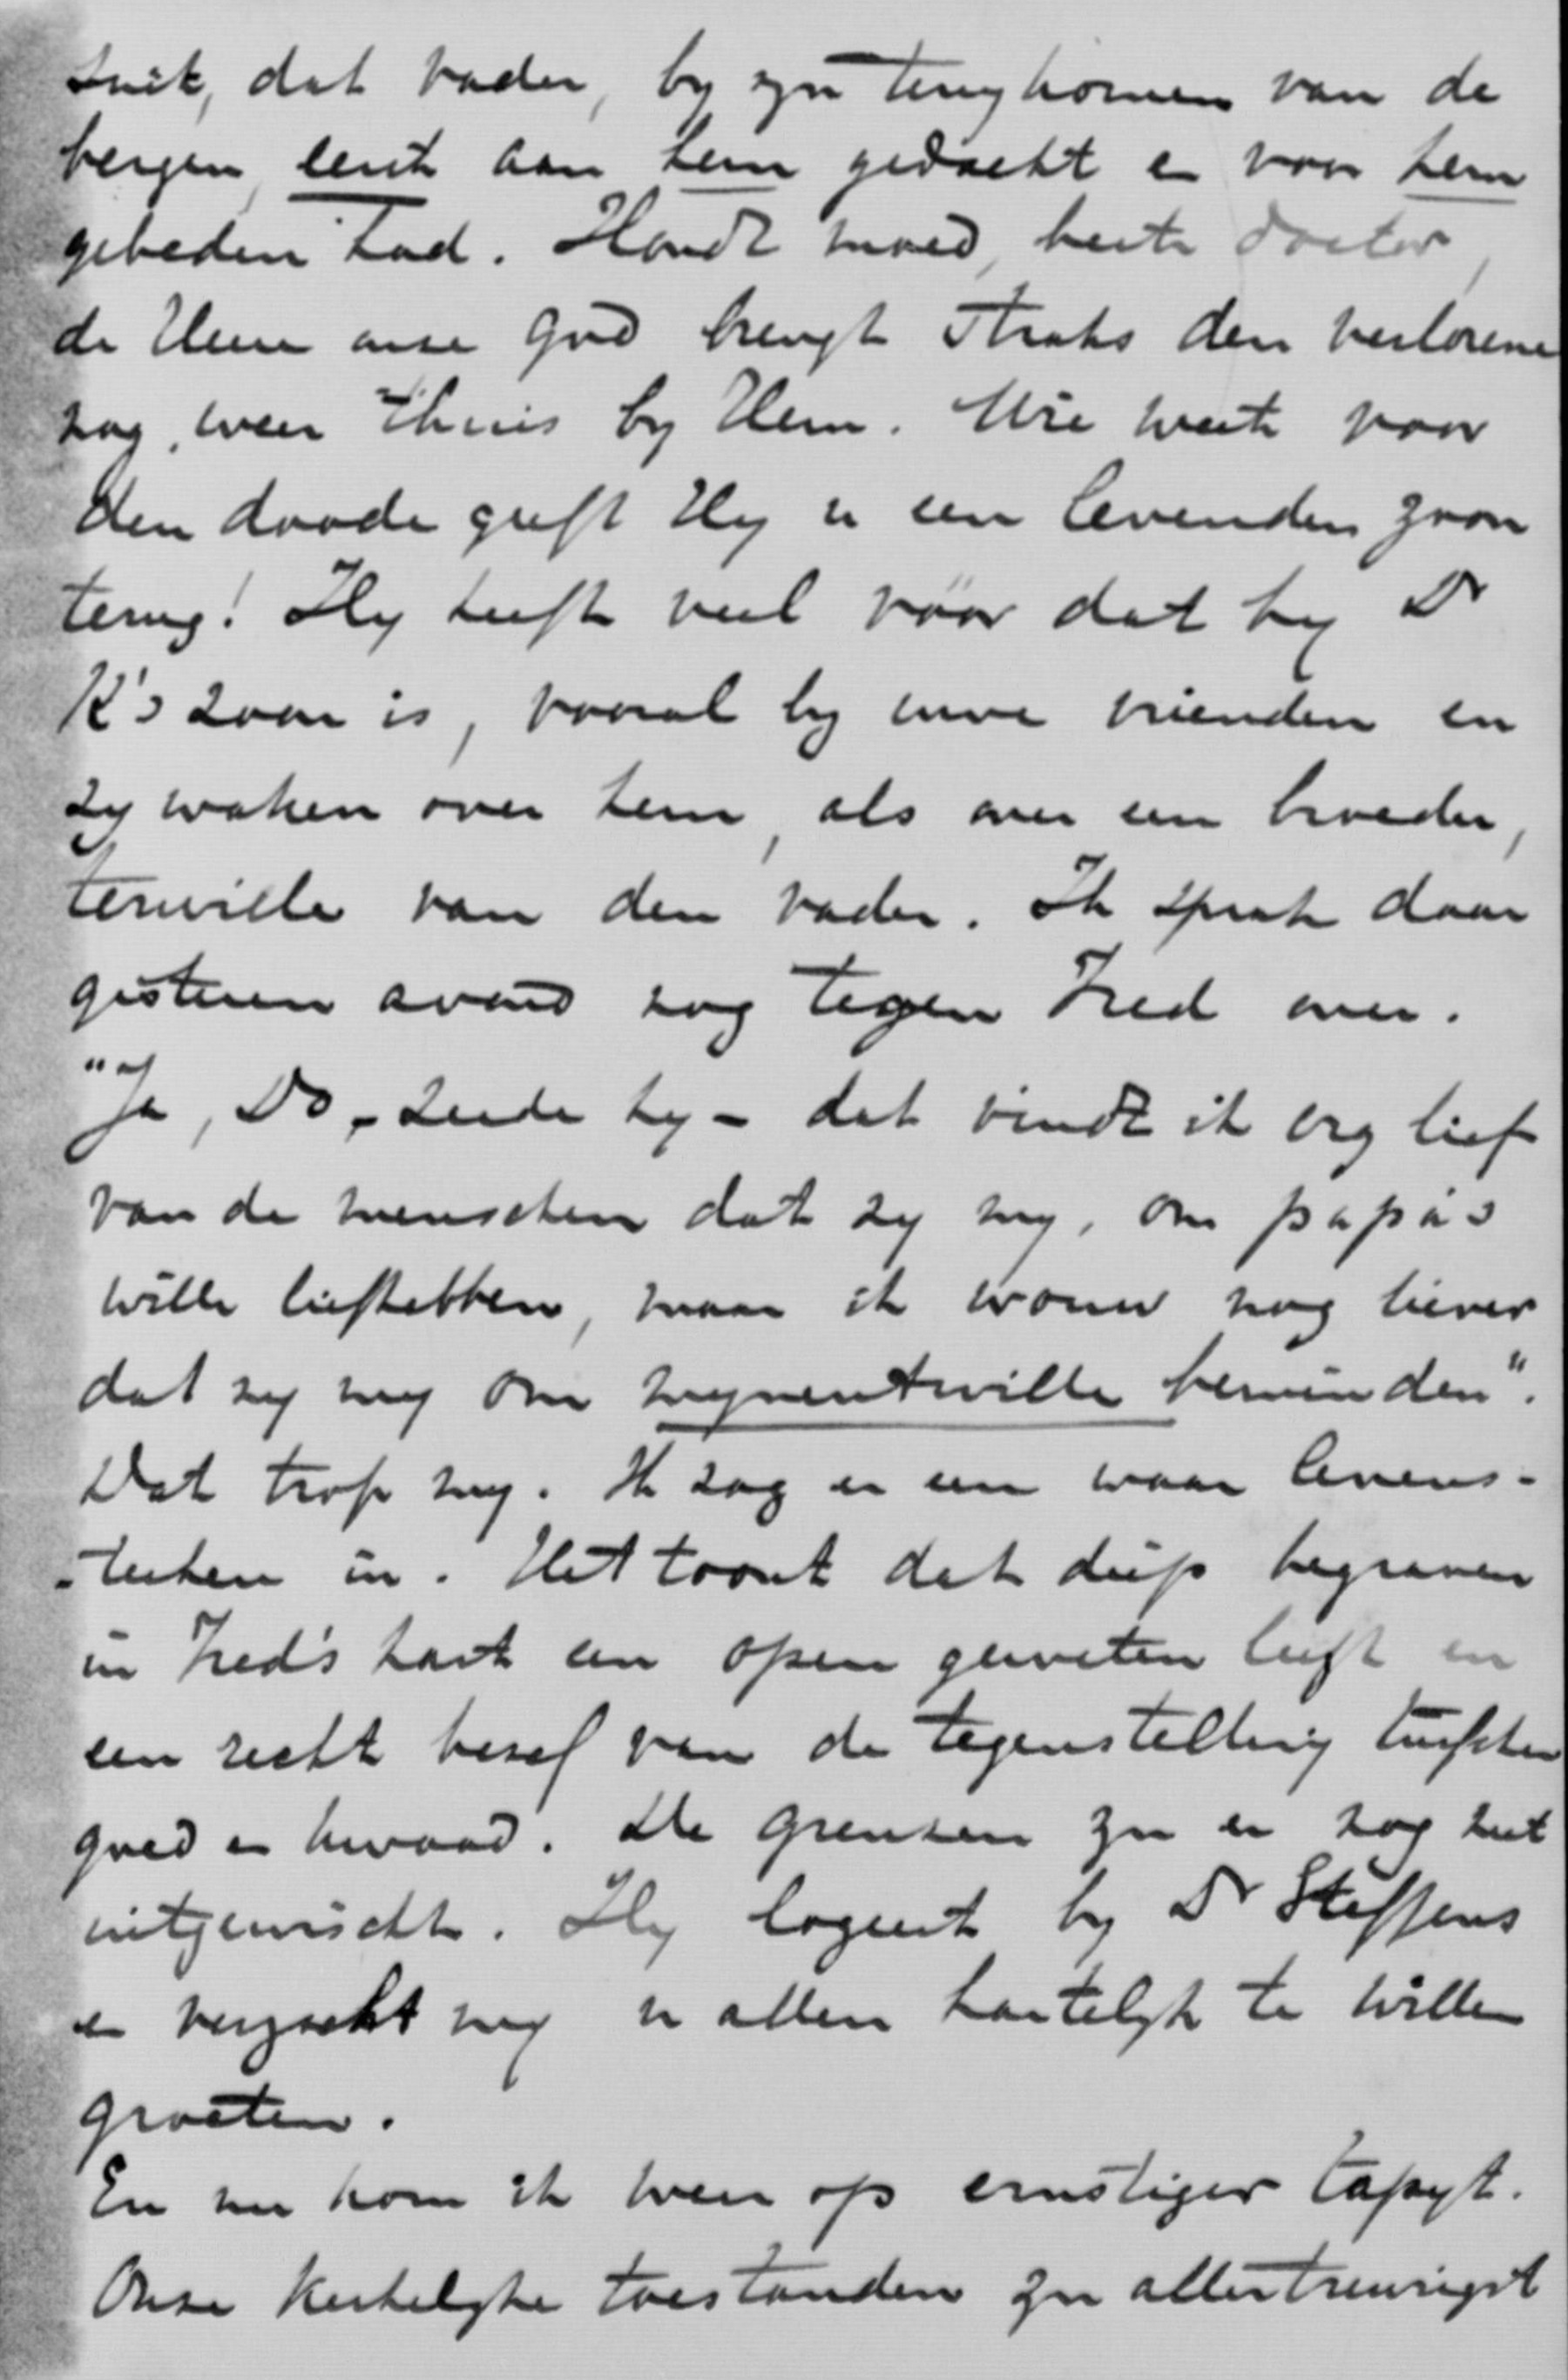 snik, dat vader, by zyn terugkomen van de
bergen, eerst aan hem gedacht en voor hem
gebeden had. Houdt moed, beste doctor,
de Heere onze God brengt straks den verlorene
nog, weer thuis by Hem. Wie weet voor
den doode geeft Hy u een levenden zoon
terug! Hy heeft veel vóór dat hy Dr
K's zoon is, vooral by uwe vrienden en
zy waken over hem, als over een broeder,
terwille van den vader. Ik sprak daar
gisteren avond nog tegen Fred over.
"Ja, Do, - zeide hy - dat vindt ik erg lief
van de menschen dat zy my, om papa's
wille liefhebben, maar ik wouw nog liever
dat zy my om mynentwille beminden".
Dat trof my. Ik zag er een waar levens-
-teeken in. Het toont dat diep begraven
in Fred's hart een open geweten leeft en
een recht besef van de tegenstelling tusschen
goed en kwaad. De grenzen zyn er nog niet
uitgewischt. Hy logeert by Dr Steffens
en verzocht my u allen hartelyk te willen
groeten.
En nu kom ik weer op ernstiger tapyt.
Onze kerkelyke toestanden zyn allertreurigst